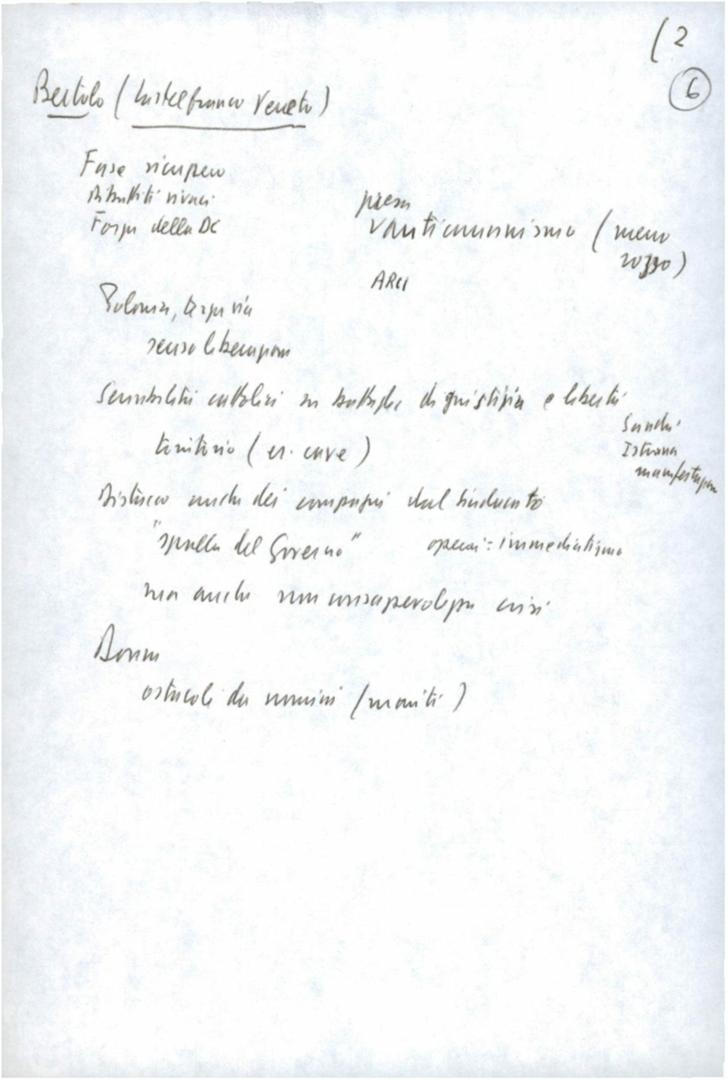 (2
6
Bertolo (Castelfranco Veneto)
Fase recupero
Dibattiti vivaci
Forza della DC
presa
anticomunismo (meno
rozzo)
ARCI
Polonia, terza via
senso liberazione
Sensibilità cattolici su battaglie di giustizia e libertà
territorio (es. cave)
Istrana
manifestazione
Distacco anche dei compagni dal sindacato
"spalla del Governo"
operai: immediatismo
ma anche non consapevolezza crisi
Donne
ostacoli da uomini (mariti)